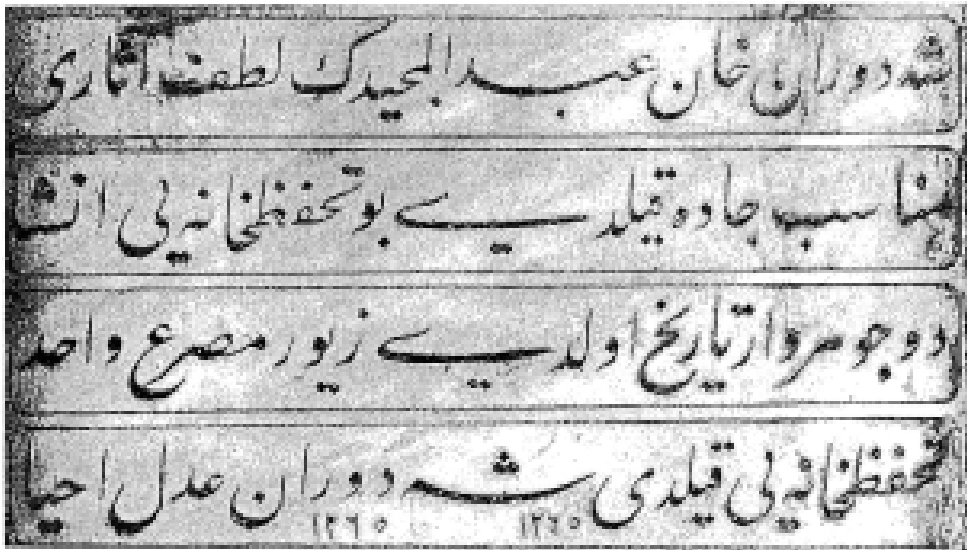 شه دوران خان عبد المجيدك لطف آثارى
مناسب جاده قيلدى بو تحفظخانه يى انشا
دو جوهروار تاريخ اولدى زيور مصرع واحد
تحفظخانه يى قيلدى شه دوران عدل احيا
١٢٦٥ ١٢٦٥